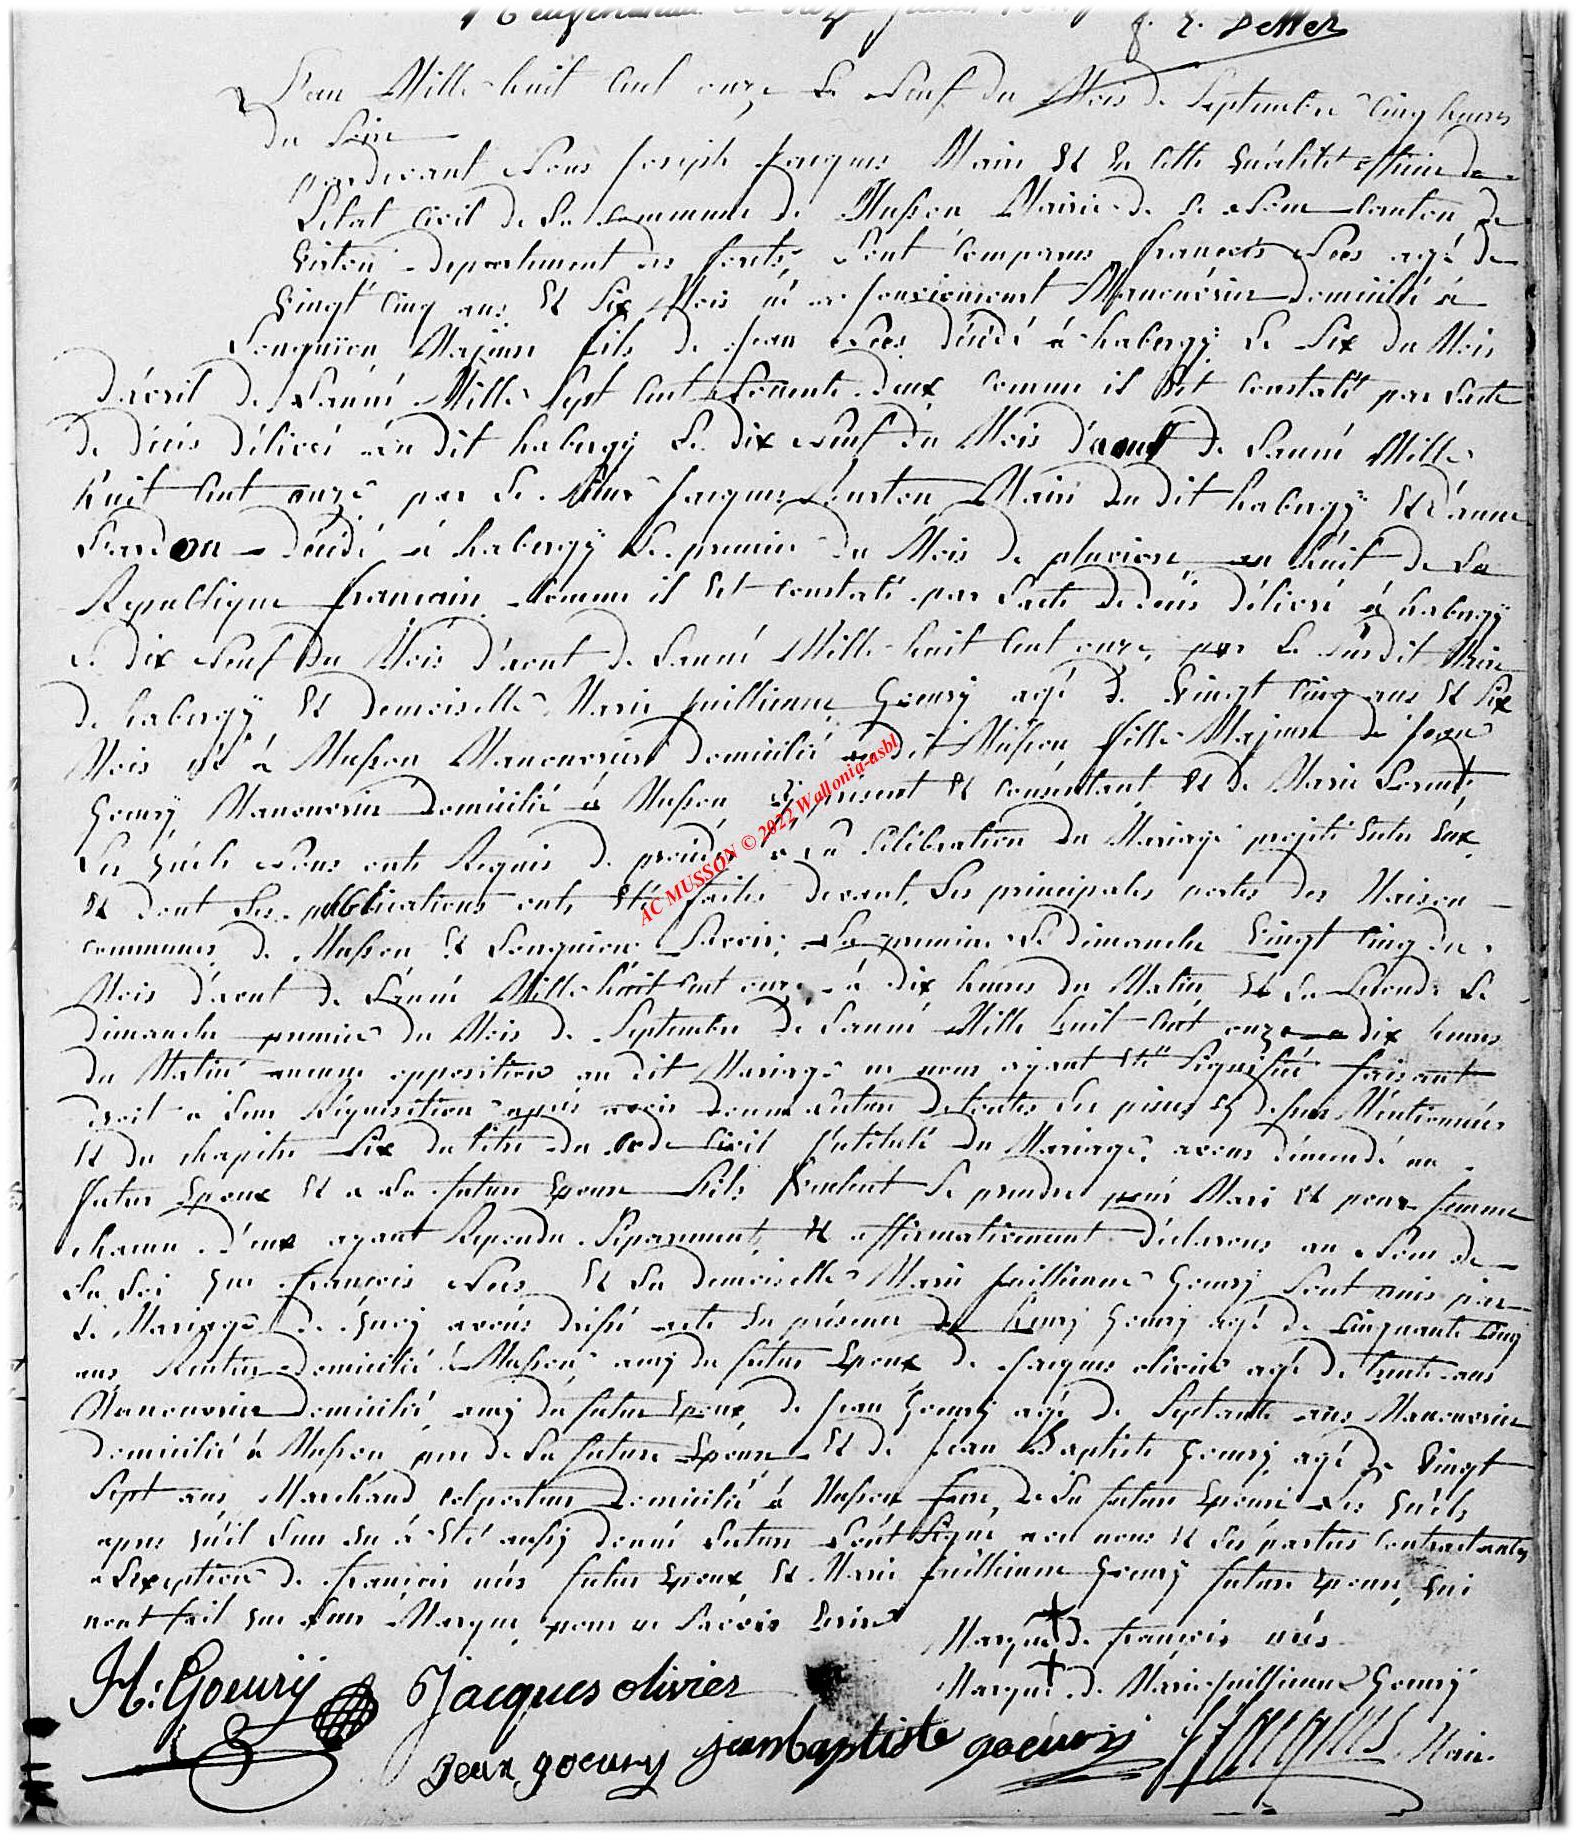 L'an Mille huit Cent onze Le Neuf du Mois de Septembre Cinq heures
du Soir
pardevant Nous Joseph Jacques Maire Et En Cette qualité officier de
Létat Civil de La Commune de Musson Mairie de Le Canton de
Virton departement des forêts, Sont Comparus françois Nées agé de
Vingt Cinq ans Et Six Mois né a Manouvrier domicilié a
Longuion Majeur fils de Jean Nées décédé à habergÿ Le Six du Mois
d'avril de Lanné Mille Sept Cent Nonente deux comme il Est Constaté par Lacte
de décés délivré au dit habergÿ Le dix Neuf du Mois d'aout de Lanné Mille
huit Cent onze par Le Jacques Maire du dit habergÿ Et d'anne
décédé à habergÿ Le premier du Mois de pluviose an huit de La
Republique francaise Comme il Est Constaté par Lacte de décés délivré à habergÿ
Le dix Neuf du Mois d'aout de Lanné Mille huit Cent onze par Le Susdit Maire
de habergÿ Et demoiselle Marie juillienne Goeurÿ agé de Vingt Cinq ans Et Six
Mois né à Musson Manouvrier domicilié au dit Musson fille Majeure de Jean
Goeurÿ Manouvrier domicilié à Musson ci present Et Consentant Et de Marie
Les quels Nous onts Requis de proceder à La Célébration du Mariage projeté Entre Eux
Et dont Les publications onts Eté faites devant Les principales portes des Maison
communes de Musson Et Longuion Savoir, La premiere Le dimanche Vingt Cinq du
Mois d'aout de Lanné Mille huit Cent onze à dix heures du Matin Et La Seconde Le
dimanche premier du Mois de Septembre de Lanné Mille huit Cent onze a dix heures
du Matin aucune opposition au dit Mariage ne nous ayant Eté Signifié faisant
droit a Leur Réquisition après avoir donné Lecture de toutes Les pieces Mentionnées
Et du chapitre Six du titre du Code Civil Intitulé du Mariage, avons démendé au
futur Epoux Et a La future Epouse Sils Veulent Se prendre pour Mari Et pour femme
chacun d'eux ayant Repondu Séparement Et affirmativement déclarons au Nom de
La Loi que françois Nées Et La demoiselle Marie juillienne Goeurÿ Sont unis par
Le Mariage de quoi avons dressé acte En présence de henry Goeurÿ agé de Cinquante Cinq
ans Rentier domicilié à Musson amy du futur Epoux de Jacques olivier agé de trente ans
Manouvrier domicilié amy du futur Epoux, de Jean Goeurÿ agé de Septante ans Manouvrier
domicilié à Musson pere de La future Epouse Et de Jean Baptiste Goeurÿ agé de Vingt
Sept ans Marchand colporteur domicilié à Musson frere de La future Epouse Les quels
apres qu'il Leur En à Eté aussy donné Lecture Sont Signé avec nous Et Les parties Contractantes
a Lexeption de françois nées futur Epoux Et Marie juillienne Goeurÿ future Epouse, qui
nont fait que Leur Marque pour ne Savoir Ecrire
Marque de françois nées
Marque de Marie juillienne Goeurÿ
H: Goeurÿ Jacques olivier
jean goeury jeanbaptiste goeury JJacques Maire
AC MUSSON © 2022 Wallonia-asbl